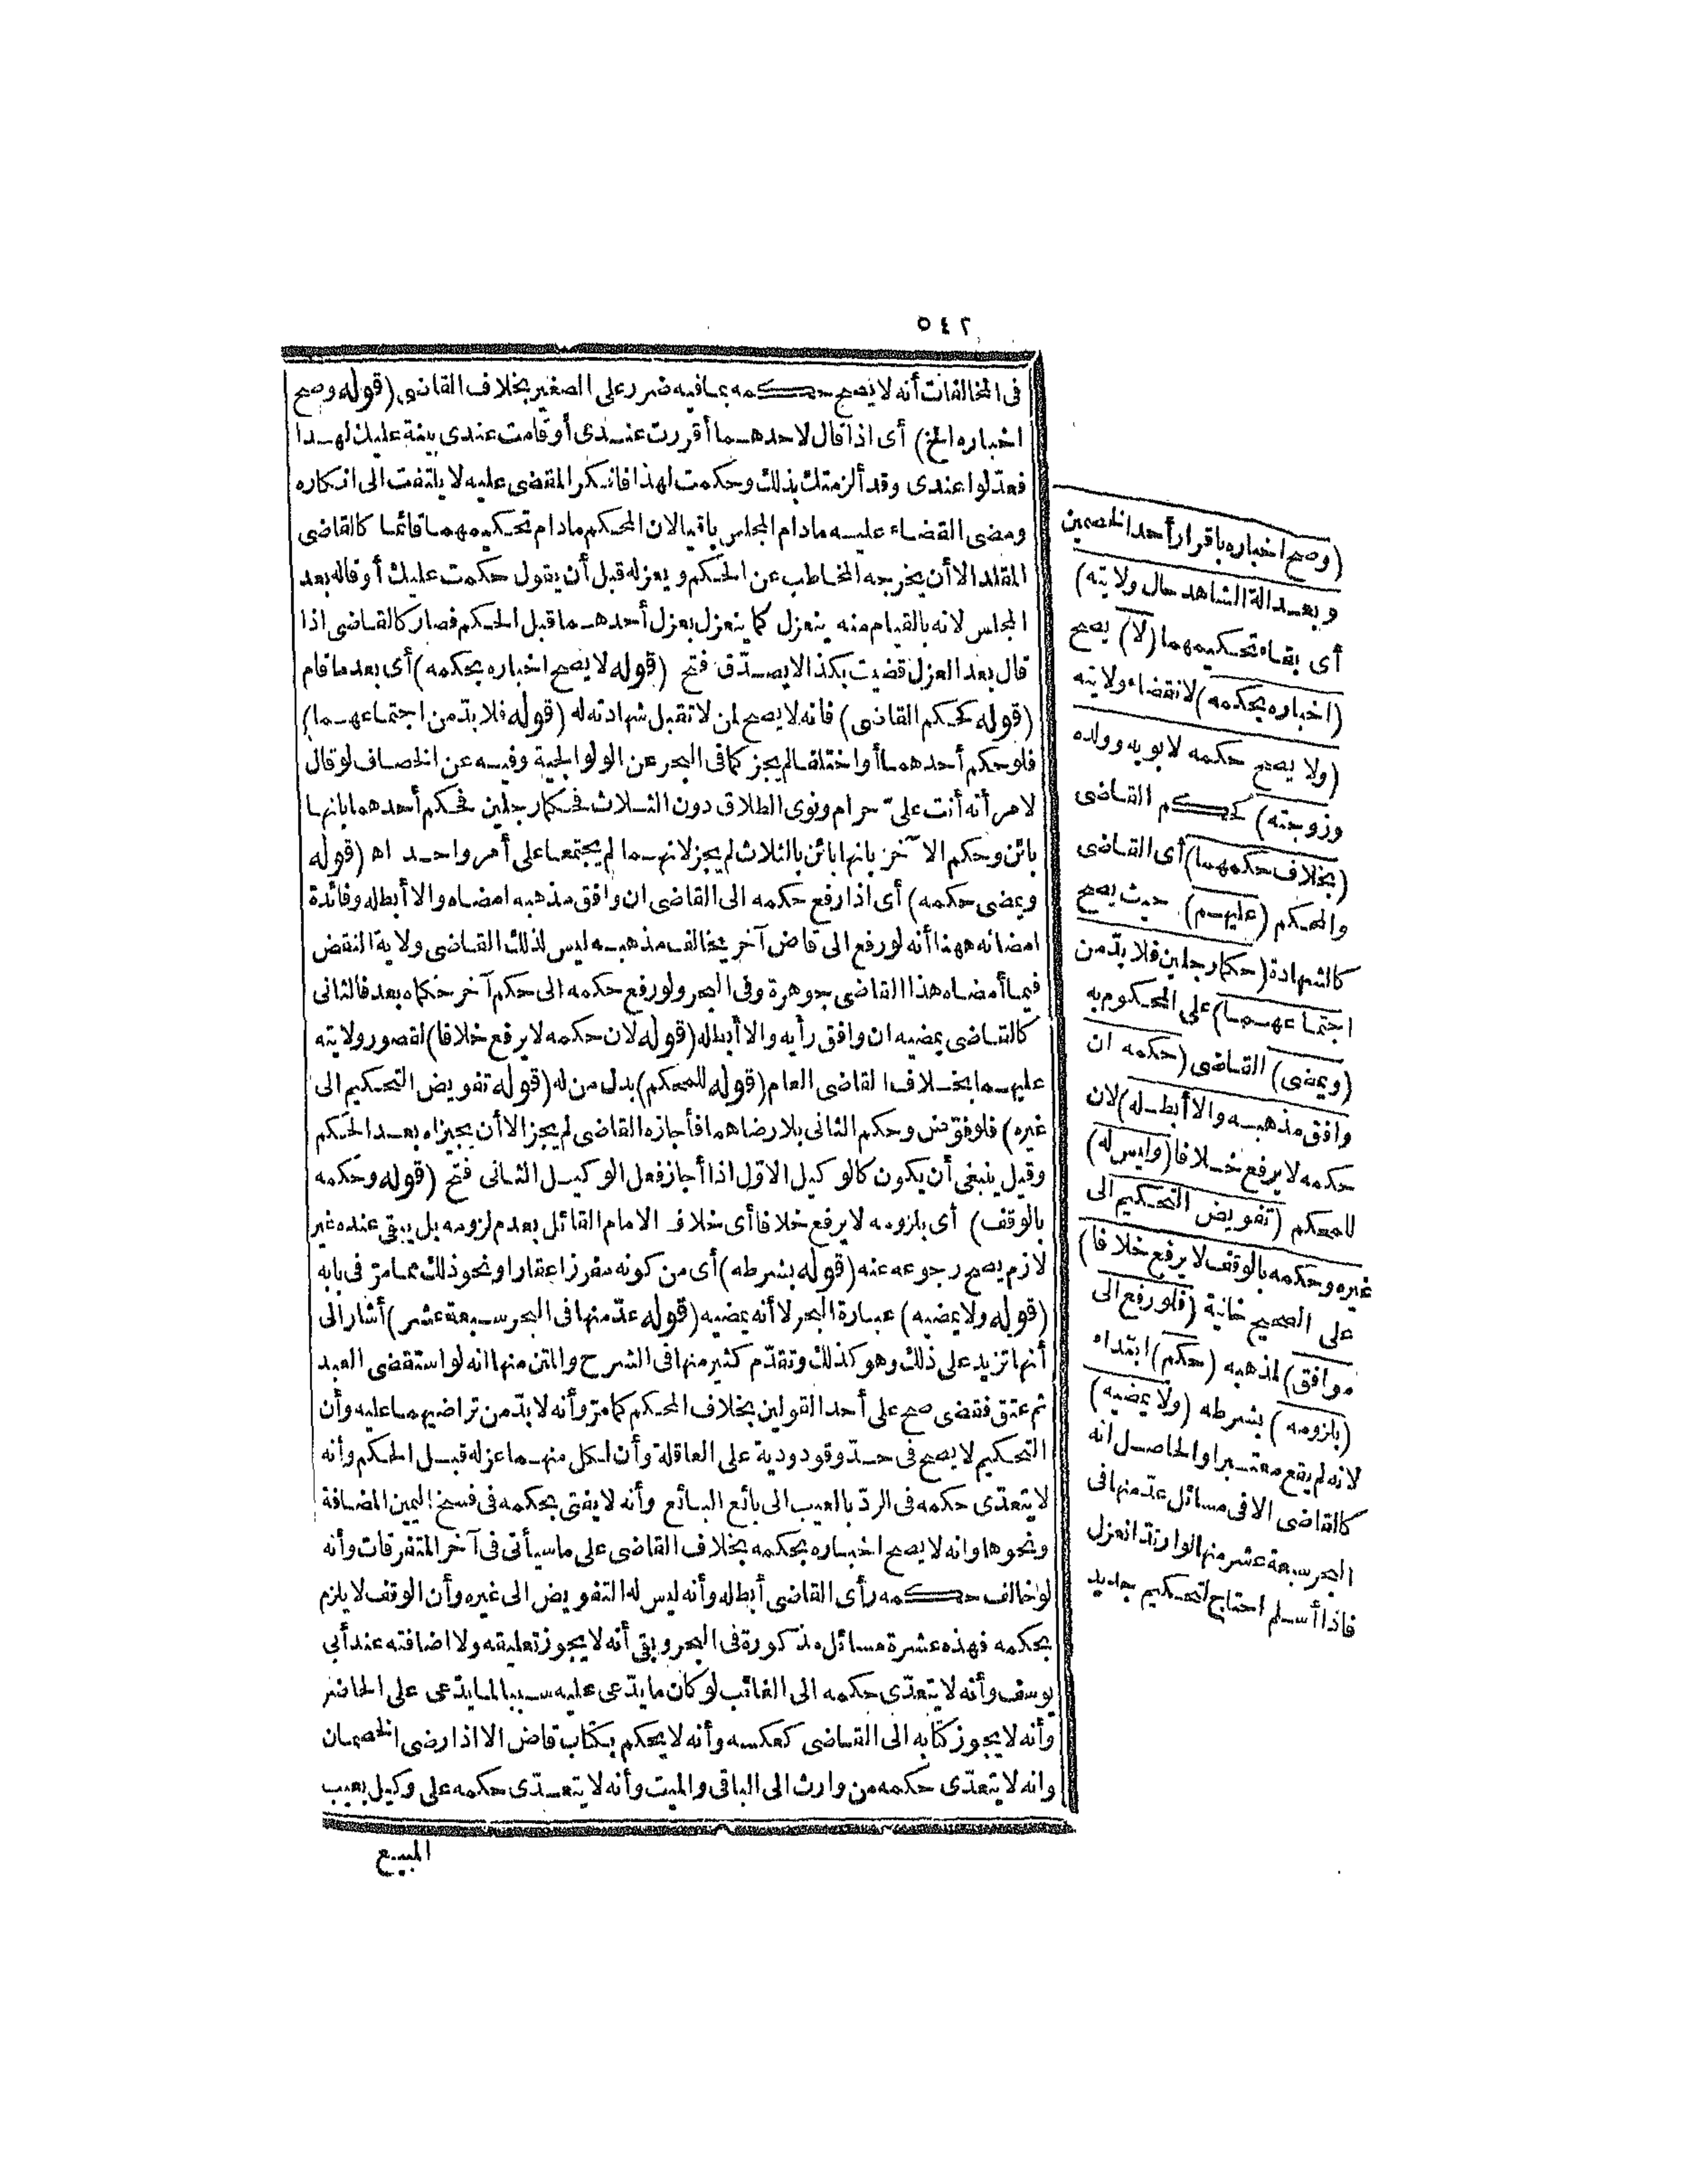 ٥٤٢
فى المخالفات أنه لا يصح حكمه بما فيه ضرر على الصغير بخلاف القاضى (قوله وصح
اخباره الخ) أى اذا قال لاحدهما أقررت عندى أو قامت عندى بينة عليك لهذا
فعدّلوا عندى وقد ألزمتك بذلك وحكمت لهذا فانكر المقضى عليه لا يلتفت الى انكاره
ومضى القضاء عليه مادام المجلس باقيا لان المحكم مادام تحكيمهما قائما كالقاضى
المقلد الا أن يخرجه المخاطب عن الحكم ويعزله قبل أن يقول حكمت عليك أو قاله بعد
المجلس لانه بالقيام منه ينعزل كما ينعزل بعزل أحدهما قبل الحكم فصار كالقاضى اذا
قال بعد العزل قضيت بكذا لا يصدّق فتح (قوله لا يصح اخباره بحكمه) أى بعد ما قام
(قوله كحكم القاضى) فانه لا يصح لمن لا تقبل شهادته له (قوله فلا بدّ من اجتماعهما)
فلو حكم أحدهما أو اختلفا لم يجز كما فى البحر عن الولوالجية وفيه عن الخصاف لو قال
لامرأته أنت علىّ حرام ونوى الطلاق دون الثلاث فحكما رجلين فحكم أحدهما بانها
بائن وحكم الآخر بانها بائن بالثلاث لم يجز لانهما لم يجتمعا على أمر واحد اه (قوله
ويمضى حكمه) أى اذا رفع حكمه الى القاضى ان وافق مذهبه امضاه والا أبطله وفائدة
امضائه ههنا أنه لو رفع الى قاض آخر يخالف مذهبه ليس لذلك القاضى ولاية النقض
فيما أمضاه هذا القاضى جوهرة وفى البحر ولو رفع حكمه الى حكم آخر حكماه بعد فالثانى
كالقاضى يمضيه ان وافق رأيه والا أبطله (قوله لان حكمه لا يرفع خلافا) لقصور ولايته
عليهما بخلاف القاضى العام (قوله للمحكم) بدل من له (قوله تفويض التحكيم الى
غيره) فلو فوّض وحكم الثانى بلا رضاهما فأجازه القاضى لم يجز الا أن يجيزاه بعد الحكم
وقيل ينبغى أن يكون كالوكيل الاوّل اذا أجاز فعل الوكيل الثانى فتح (قوله وحكمه
بالوقف) أى بلزومه لا يرفع خلافا أى خلاف الامام القائل بعدم لزومه بل يبقى عنده غير
لازم يصح رجوعه عنه (قوله بشرطه) أى من كونه مفرزا عقارا ونحو ذلك مما مرّ فى بابه
(قوله ولا يمضيه) عبارة البحر لا أنه يمضيه (قوله عدّ منها فى البحر سبعة عشر) أشار الى
أنها تزيد على ذلك وهو كذلك وتقدّم كثير منها فى الشرح والمتن منها انه لو استقضى العبد
ثم عتق فقضى صح على أحد القولين بخلاف المحكم كما مرّ وأنه لا بدّ من تراضيهما عليه وأن
التحكيم لا يصح فى حدّ وقود ودية على العاقلة وأن لكل منهما عزله قبل الحكم وأنه
لا يتعدّى حكمه فى الردّ بالعيب الى بائع البائع وأنه لا يفتى بحكمه فى فسخ اليمين المضافة
ونحوها وانه لا يصح اخباره بحكمه بخلاف القاضى على ما سيأتى فى آخر المتفرقات وأنه
لو خالف حكمه رأى القاضى أبطله وأنه ليس له التفويض الى غيره وأن الوقف لا يلزم
بحكمه فهذه عشرة مسائل مذكورة فى البحر وبقى أنه لا يجوز تعليقه ولا اضافته عند أبى
يوسف وأنه لا يتعدّى حكمه الى الغائب لو كان ما يدّعى عليه سببا لما يدّعى على الحاضر
وأنه لا يجوز كتابه الى القاضى كعكسه وأنه لا يحكم بكتاب قاض الا اذا رضى الخصمان
وانه لا يتعدّى حكمه من وارث الى الباقى والميت وأنه لا يتعدّى حكمه على وكيل بعيب
المبيع
(وصح اخباره باقرار أحد الخصمين
وبعدالة الشاهد حال ولايته)
أى بقاء تحكيمهما (لا) يصح
(اخباره بحكمه) لانقضاء ولايته
(ولا يصح حكمه لابويه وولده
وزوجته) كحكم القاضى
(بخلاف حكمهما) أى القاضى
والمحكم (عليهم) حيث يصح
كالشهادة (حكما رجلين فلا بدّ من
اجتماعهما) على المحكوم به
(ويمضى) القاضى (حكمه ان
وافق مذهبه والا أبطله) لان
حكمه لا يرفع خلافا (وليس له)
للمحكم (تفويض التحكيم الى
غيره وحكمه بالوقف لا يرفع خلافا)
على الصحيح خانية (فلو رفع الى
موافق) لمذهبه (حكم) ابتداء
(بلزومه) بشرطه (ولا يمضيه)
لانه لم يقع معتبرا والحاصل انه
كالقاضى الا فى مسائل عدّ منها فى
البحر سبعة عشر منها لو ارتدّ انعزل
فاذا أسلم احتاج لتحكيم جديد